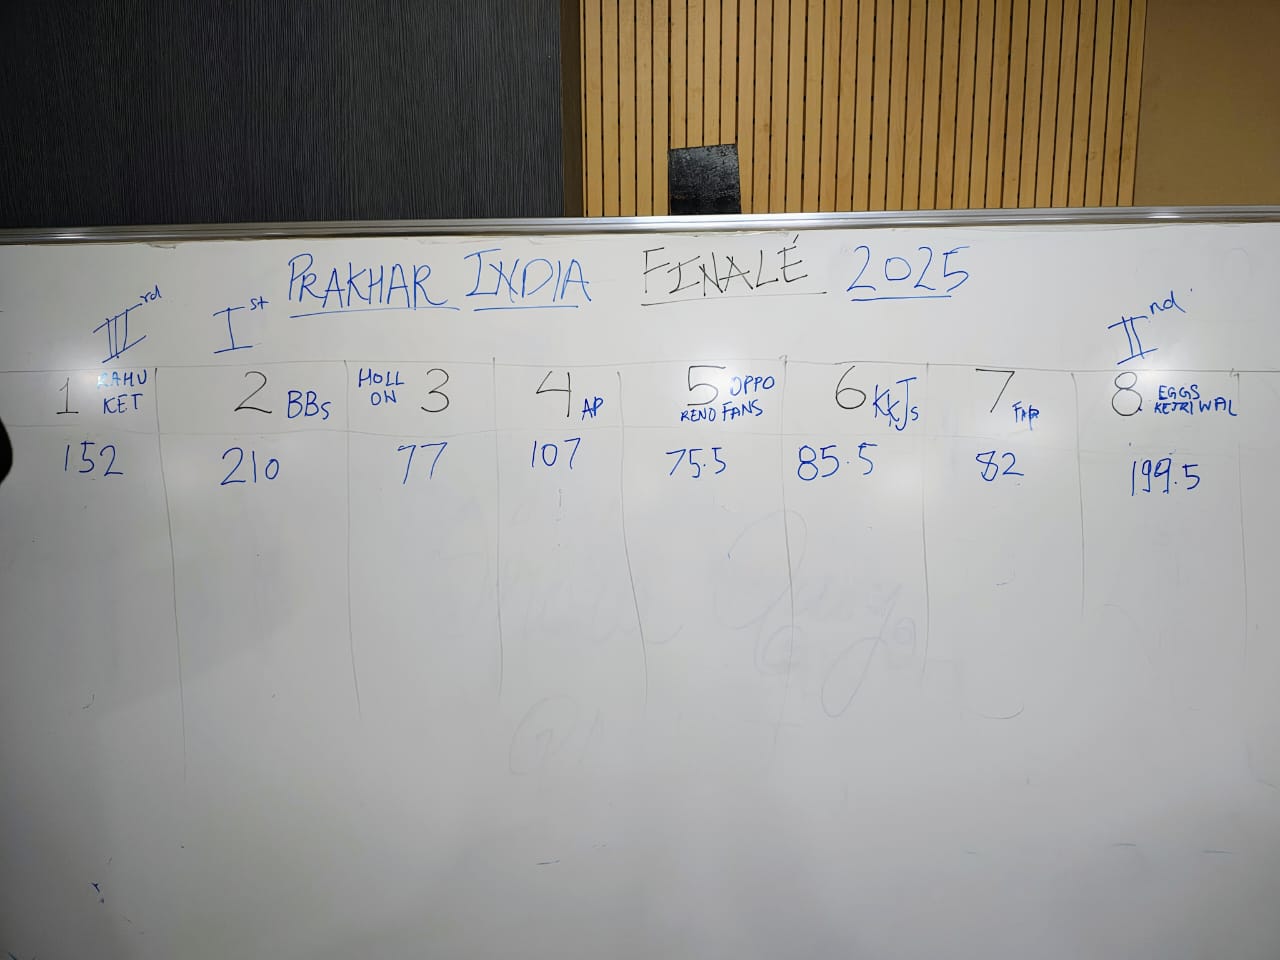 PRAKHAR INDIA FINALÉ 2025
IIIrd Ist IInd
1 RAHU KET 2 BBs HOLL ON 3 4 AP 5 OPPO RENO FANS 6 KKJs 7 8 EGGS KEJRIWAL
152 210 77 107 75.5 85.5 82 199.5